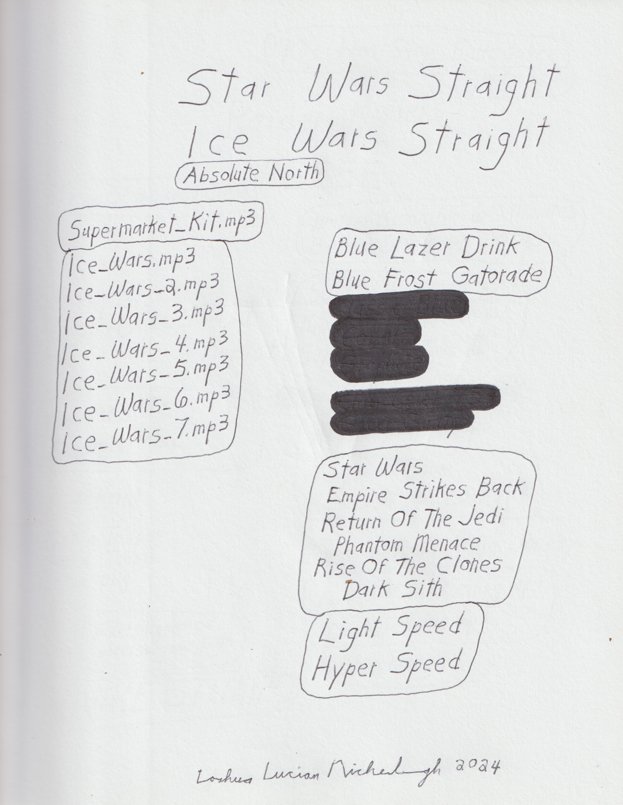 Star Wars Straight
Ice Wars Straight
Absolute North
Supermarket_Kit.mp3
Ice_Wars.mp3
Ice_Wars_2.mp3
Ice_Wars_3.mp3
Ice_Wars_4.mp3
Ice_Wars_5.mp3
Ice_Wars_6.mp3
Ice_Wars_7.mp3
Blue Lazer Drink
Blue Frost Gatorade
Star Wars
Empire Strikes Back
Return Of The Jedi
Phantom Menace
Rise Of The Clones
Dark Sith
Light Speed
Hyper Speed
Lucian 2024